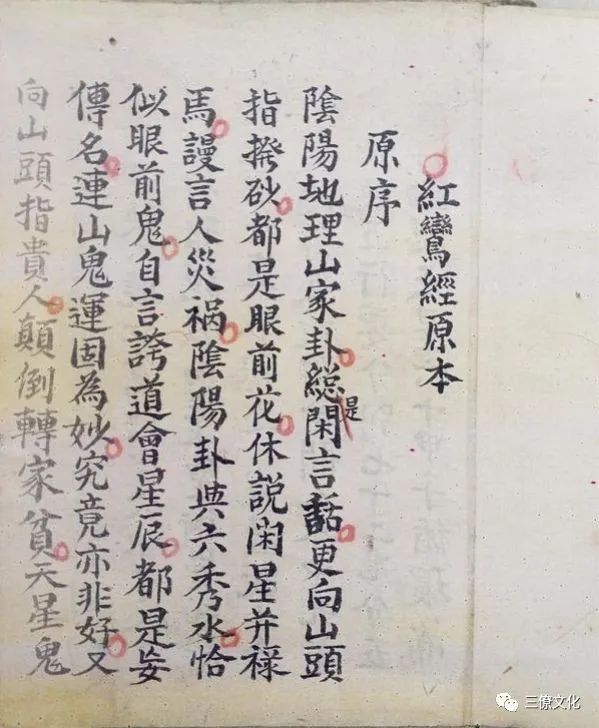 紅鸞經原本
原序
陰陽地理山家卦總是閑言話更向山頭
指撥砂都是眼前花休説闲星并禄
馬謾言人災禍陰陽卦與六秀水恰
似眼前鬼自言誇道會星辰都是妄
傳名連山鬼運固為妙究竟亦非好又
向山頭指貴人顛倒轉家貧天星鬼
三僚文化